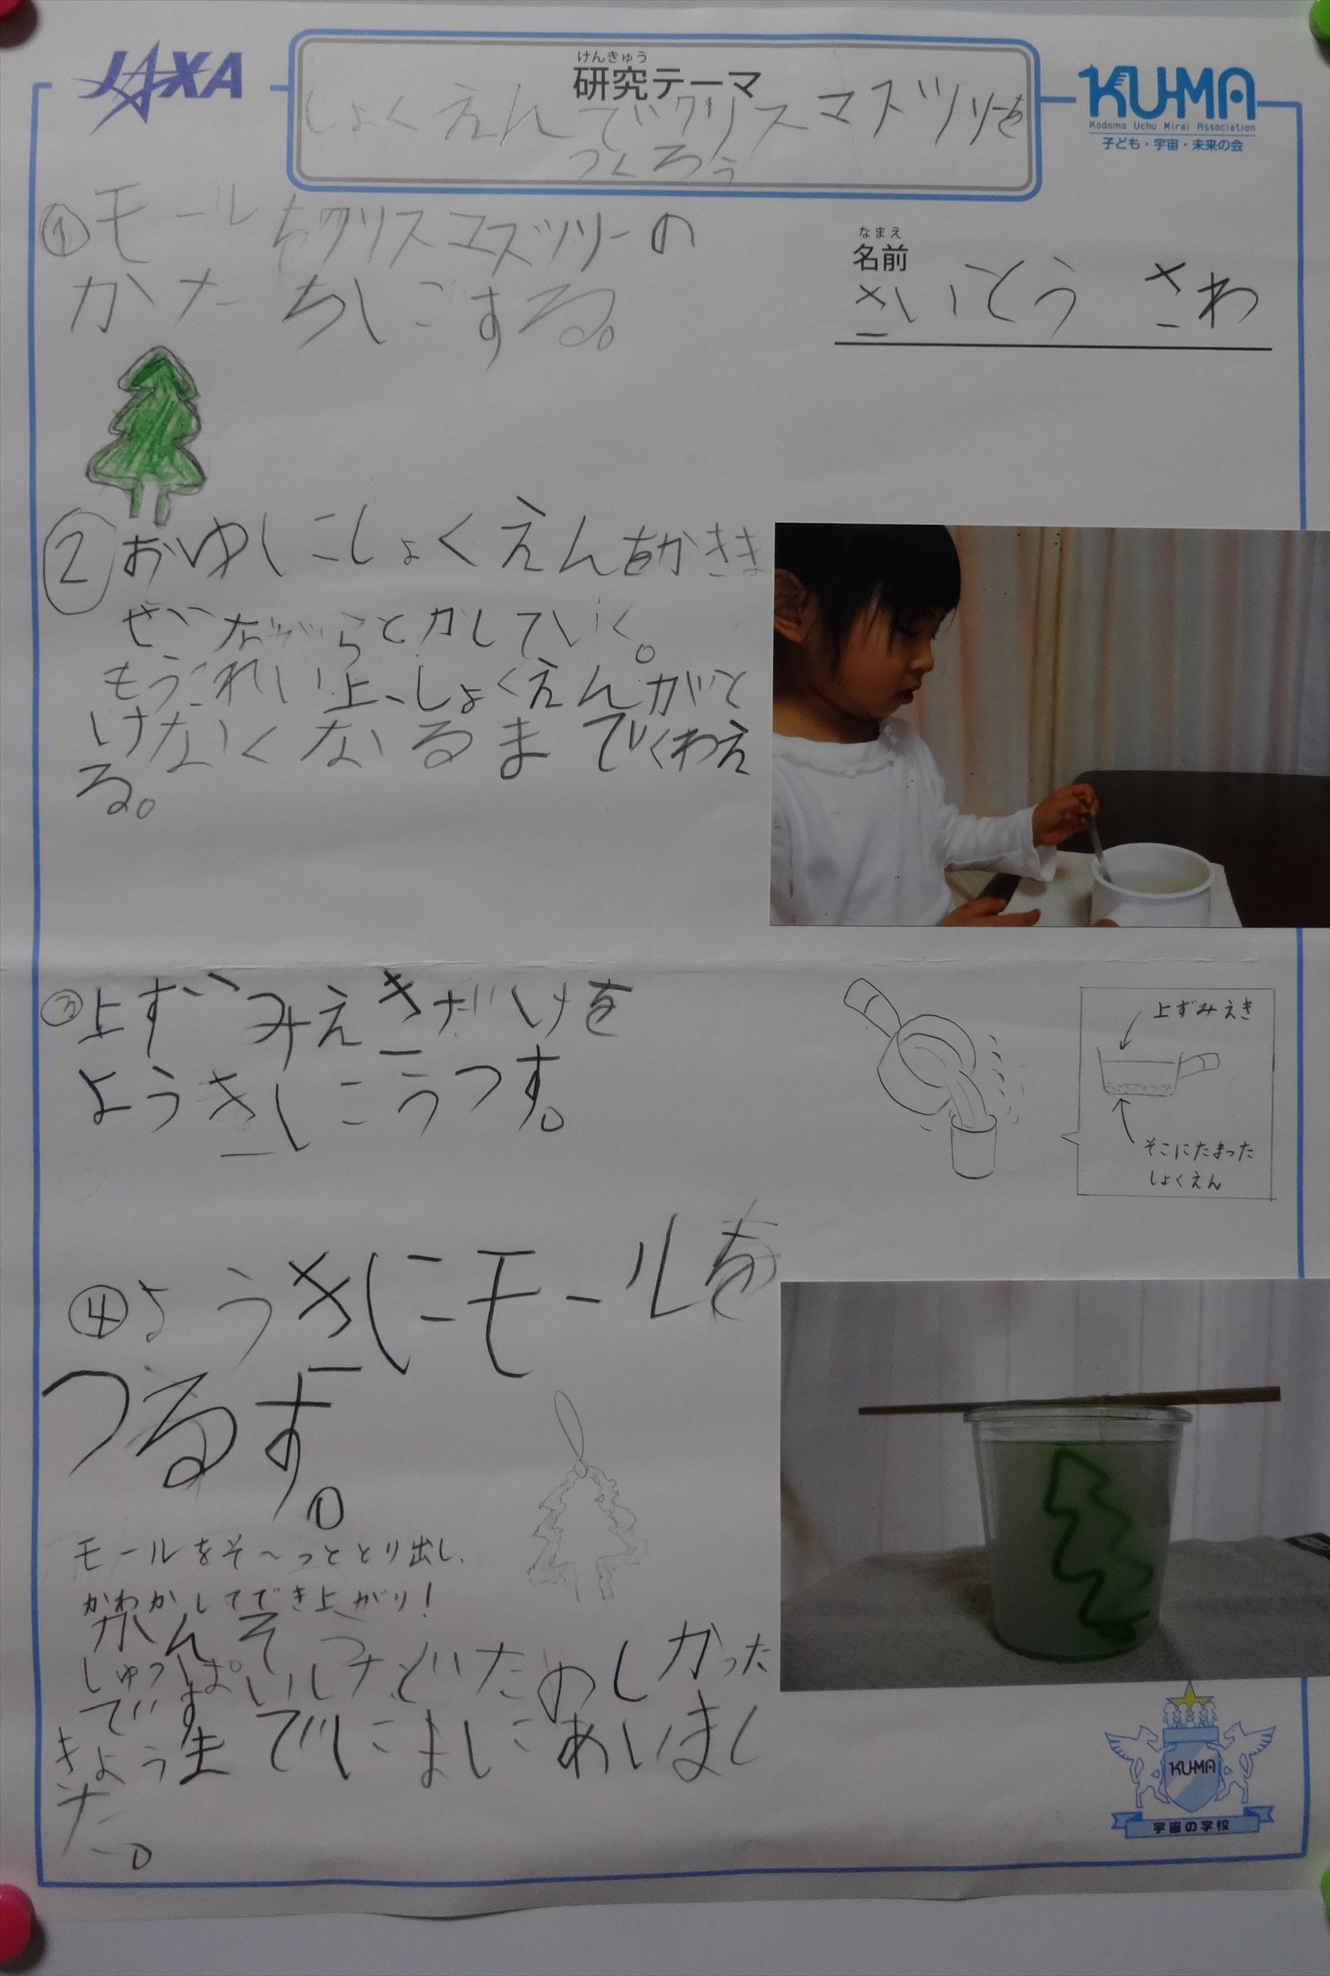 JAXA
けんきゅう
研究テーマ
しょくえんでクリスマスツリーを
つくろう
KU-MA
Kodomo Uchu Mirai Association
子ども・宇宙・未来の会
なまえ
名前
さいとう さわ
①モールをクリスマスツリーの
かたちにする。
②おゆにしょくえんをかきま
ぜながらとかしていく。
もうこれい上、しょくえんがと
けなくなるまでくわえ
る。
③上ずみえきだけを
ようきにうつす。
上ずみえき
そこにたまった
しょくえん
④ようきにモールを
つるす。
モールをそ～っととり出し、
かわかしてでき上がり!
かんそう
しゅっぱいしたけどたのしかった
です
きょうまでにまにあいまし
た。
KU-MA
宇宙の学校